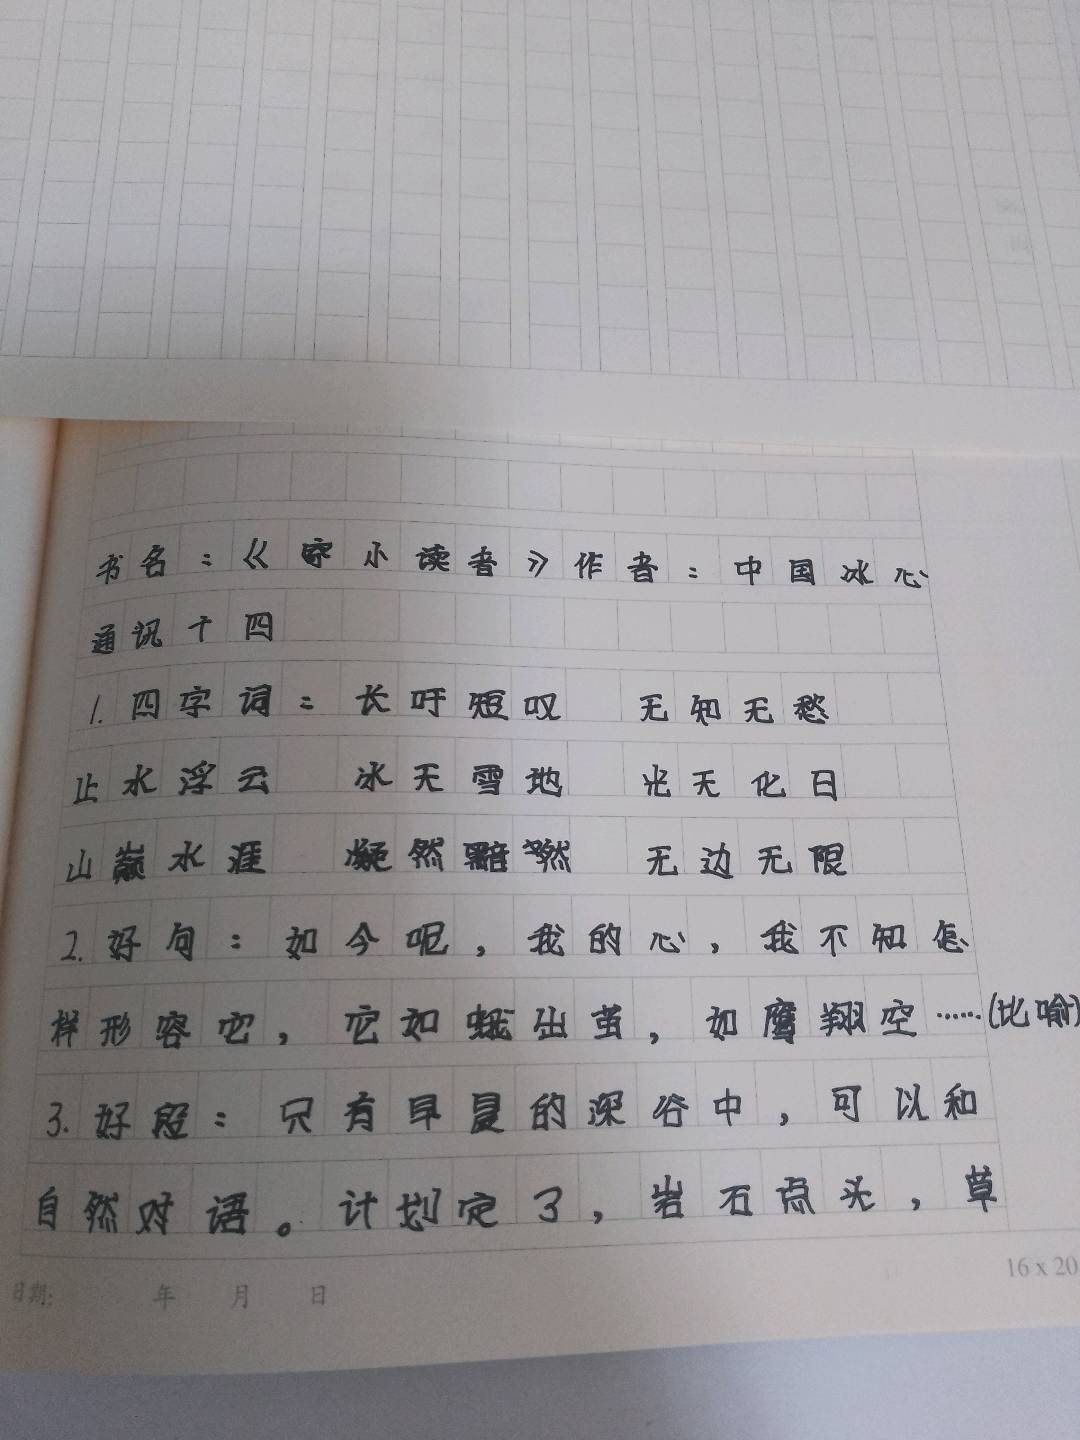 书名：《寄小读者》作者：中国冰心
通讯十四
1.四字词：长吁短叹 无知无愁
止水浮云 冰天雪地 光天化日
山巅水涯 凝然黯然 无边无限
2.好句：如今呢，我的心，我不知怎
样形容它，它如蛾出茧，如鹰翔空……(比喻)
3.好段：只有早晨的深谷中，可以和
自然对语。计划定了，岩石点头，草
日期: 年 月 日
16x20